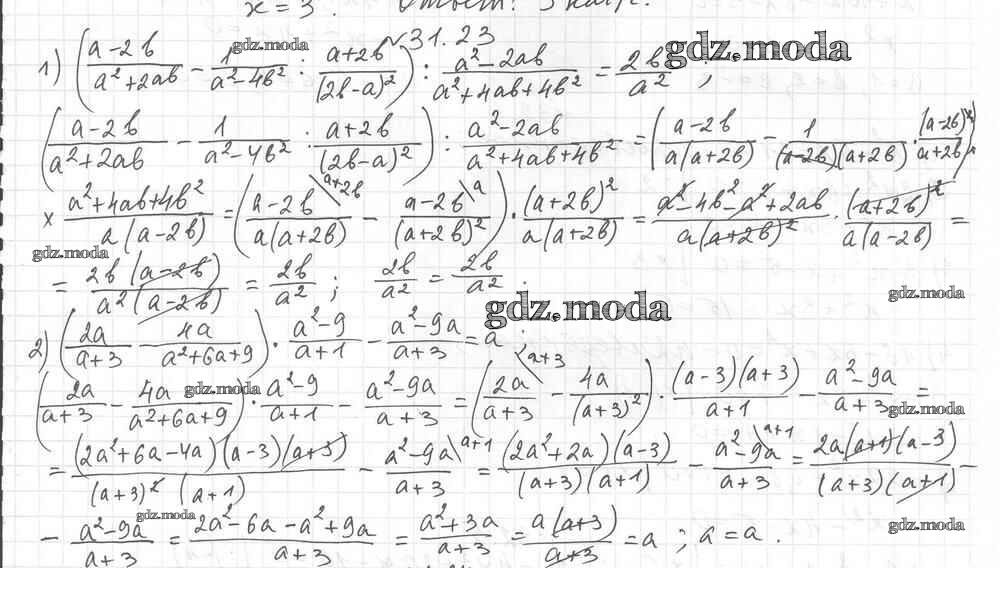 x = 3. Ответ:
№31.23
1) ((a-2b)/(a²+2ab) - 1/(a²-4b²) : (a+2b)/(2b-a)²) : (a²-2ab)/(a²+4ab+4b²) = 2b/a² ;
((a-2b)/(a²+2ab) - 1/(a²-4b²) : (a+2b)/(2b-a)²) : (a²-2ab)/(a²+4ab+4b²) = ((a-2b)/(a(a+2b)) - 1/((a-2b)(a+2b)) · (a-2b)²/(a+2b)) ×
× (a²+4ab+4b²)/(a(a-2b)) = ((a-2b)\a+2b/(a(a+2b)) - (a-2b)\a/(a+2b)²) · (a+2b)²/(a(a+2b)) = (a²-4b²-a²+2ab)/(a(a+2b)²) · (a+2b)²/(a(a-2b)) =
= 2b(a-2b)/(a²(a-2b)) = 2b/a² ; 2b/a² = 2b/a² .
2) (2a/(a+3) - 4a/(a²+6a+9)) · (a²-9)/(a+1) - (a²-9a)/(a+3) = a ;
(2a/(a+3) - 4a/(a²+6a+9)) · (a²-9)/(a+1) - (a²-9a)/(a+3) = (2a\a+3/(a+3) - 4a/(a+3)²) · (a-3)(a+3)/(a+1) - (a²-9a)/(a+3) =
= (2a²+6a-4a)(a-3)(a+3)/((a+3)²(a+1)) - (a²-9a)\a+1/(a+3) = (2a²+2a)(a-3)/((a+3)(a+1)) - (a²-9a)\a+1/(a+3) = 2a(a+1)(a-3)/((a+3)(a+1)) -
- (a²-9a)/(a+3) = (2a²-6a-a²+9a)/(a+3) = (a²+3a)/(a+3) = a(a+3)/(a+3) = a ; a = a .
gdz.moda
gdz.moda
gdz.moda
gdz.moda
gdz.moda
gdz.moda
gdz.moda
gdz.moda
gdz.moda